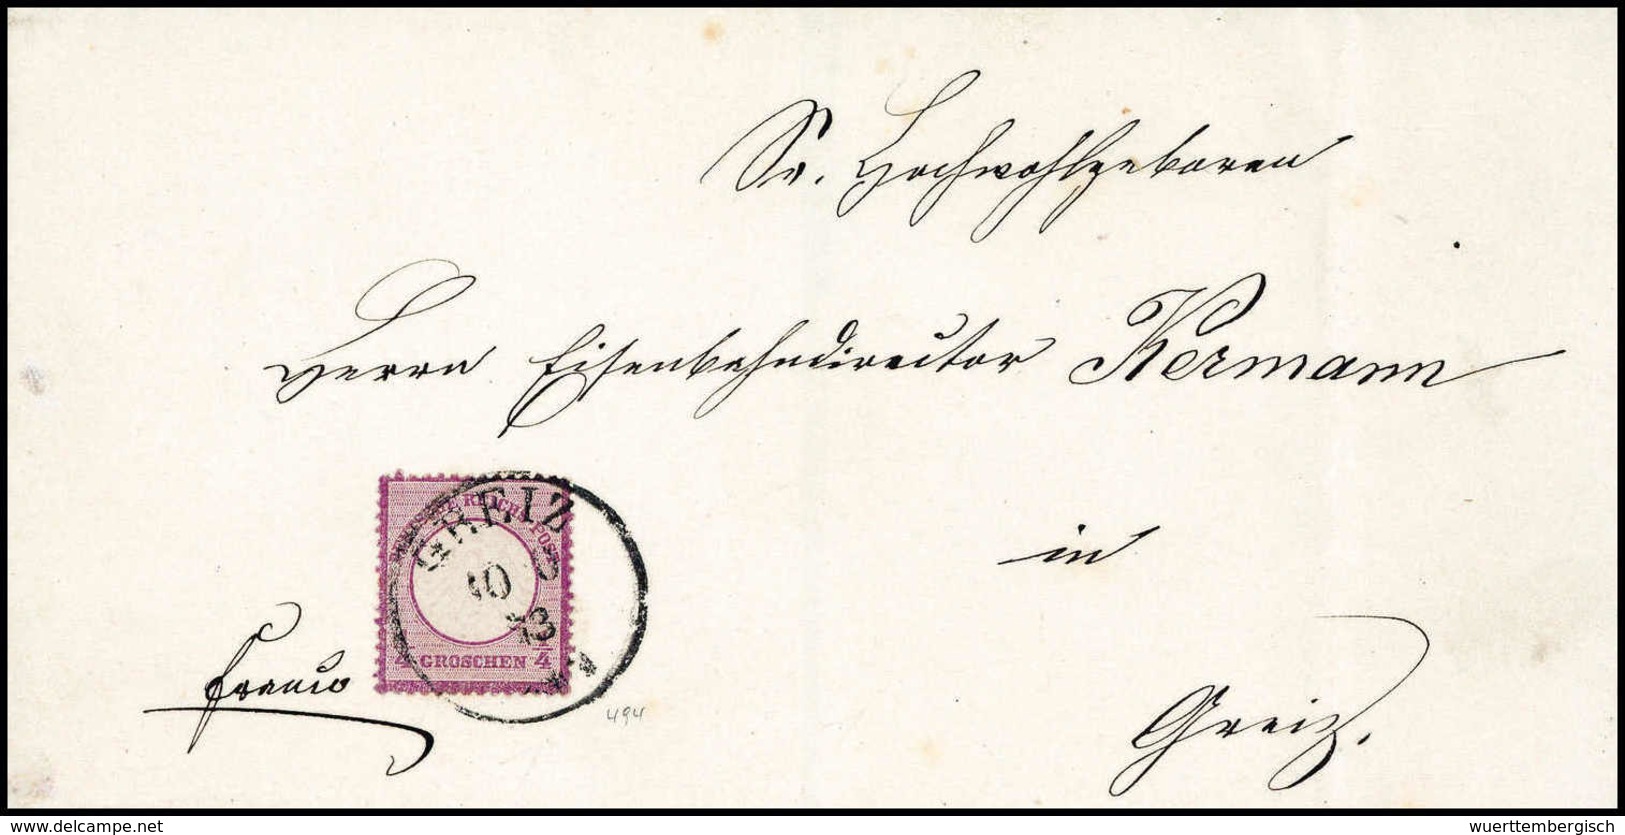 Sr. Hochwohlgeboren
Herrn Eisenbahndirector Kermann
in
Greiz.
franco
REICHS POST
¼ GROSCHEN ¼
GREIZ
10
73
494
www.delcampe.net
wuerttembergisch